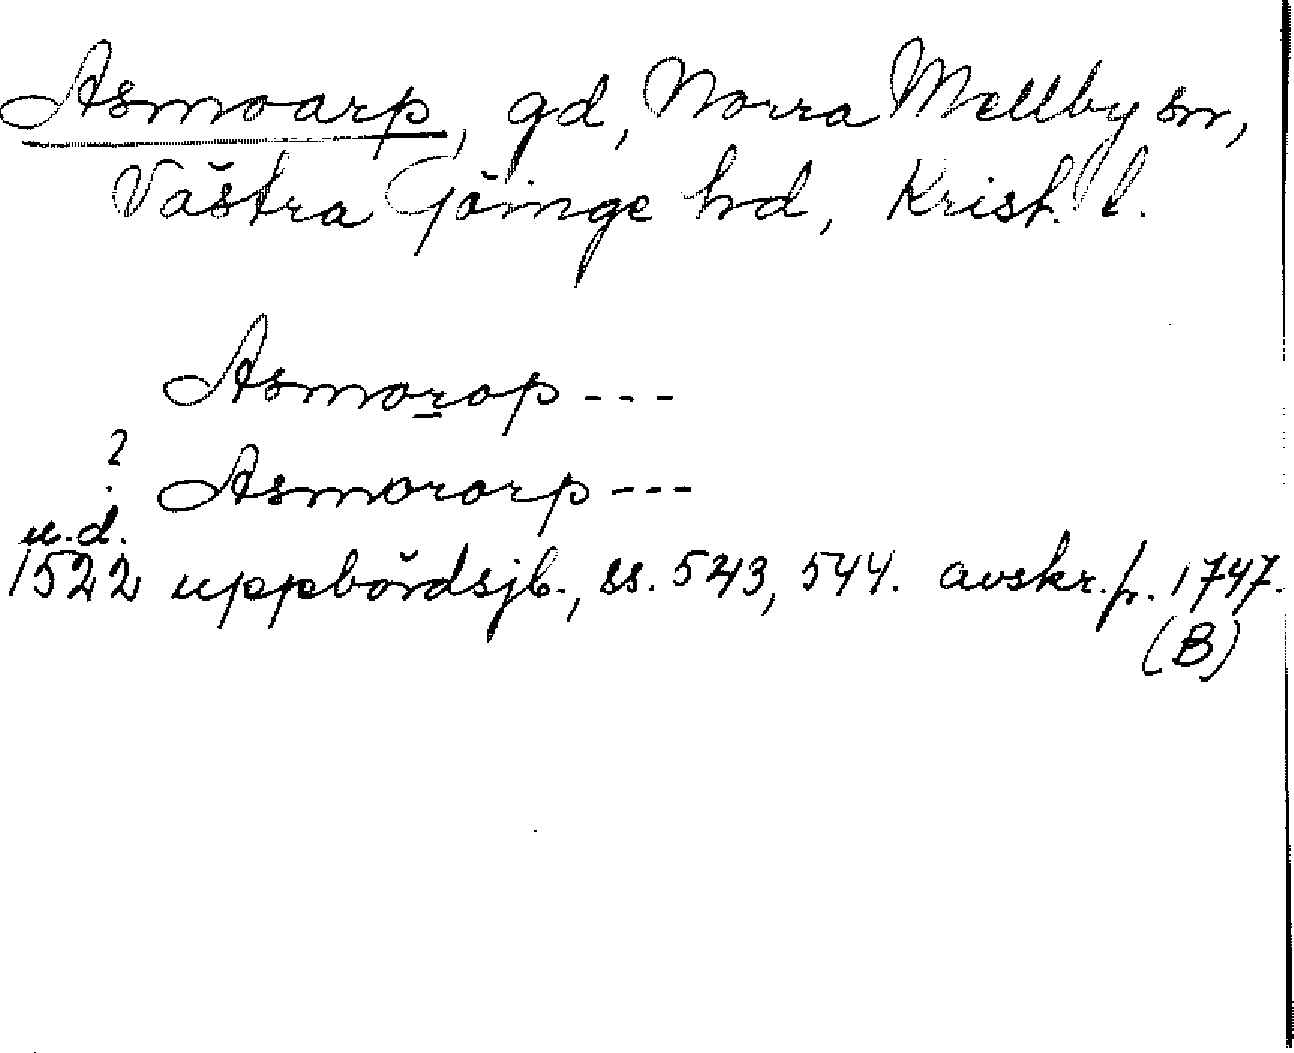 Asmoarp, gd, Norra Mellby sn,
Västra Göinge hd, Krist. l.
Asmorop ---
? Asmorarp ---
u.d.
1522 uppbördsjb., ss. 543, 544. avskr. fr. 1747.
(B)